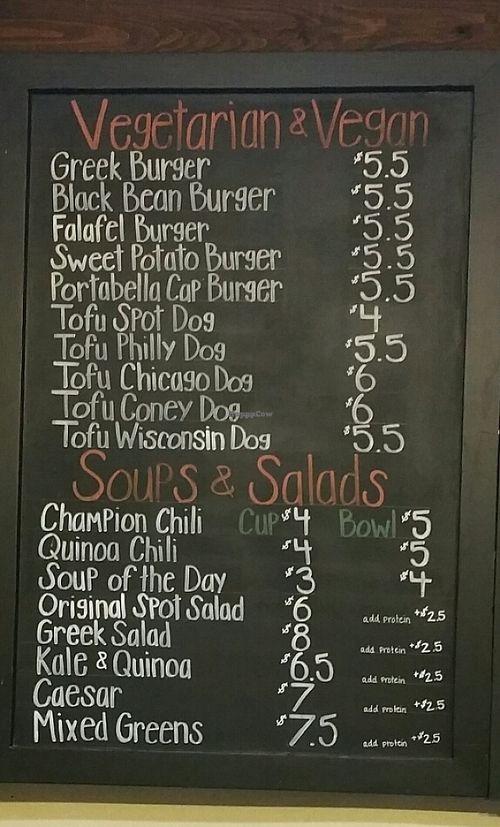 Vegetarian & Vegan
Greek Burger $5.5
Black Bean Burger $5.5
Falafel Burger $5.5
Sweet Potato Burger $5.5
Portabella Cap Burger $5.5
Tofu Spot Dog $4
Tofu Philly Dog $5.5
Tofu Chicago Dog $6
Tofu Coney Dog $6
HappyCow
Tofu Wisconsin Dog $5.5
Soups & Salads
Champion Chili Cup $4 Bowl $5
Quinoa Chili $4 $5
Soup of the Day $3 $4
Original Spot Salad $6 add protein +$2.5
Greek Salad $8 add protein +$2.5
Kale & Quinoa $6.5 add protein +$2.5
Caesar $7 add protein +$2.5
Mixed Greens $7.5 add protein +$2.5